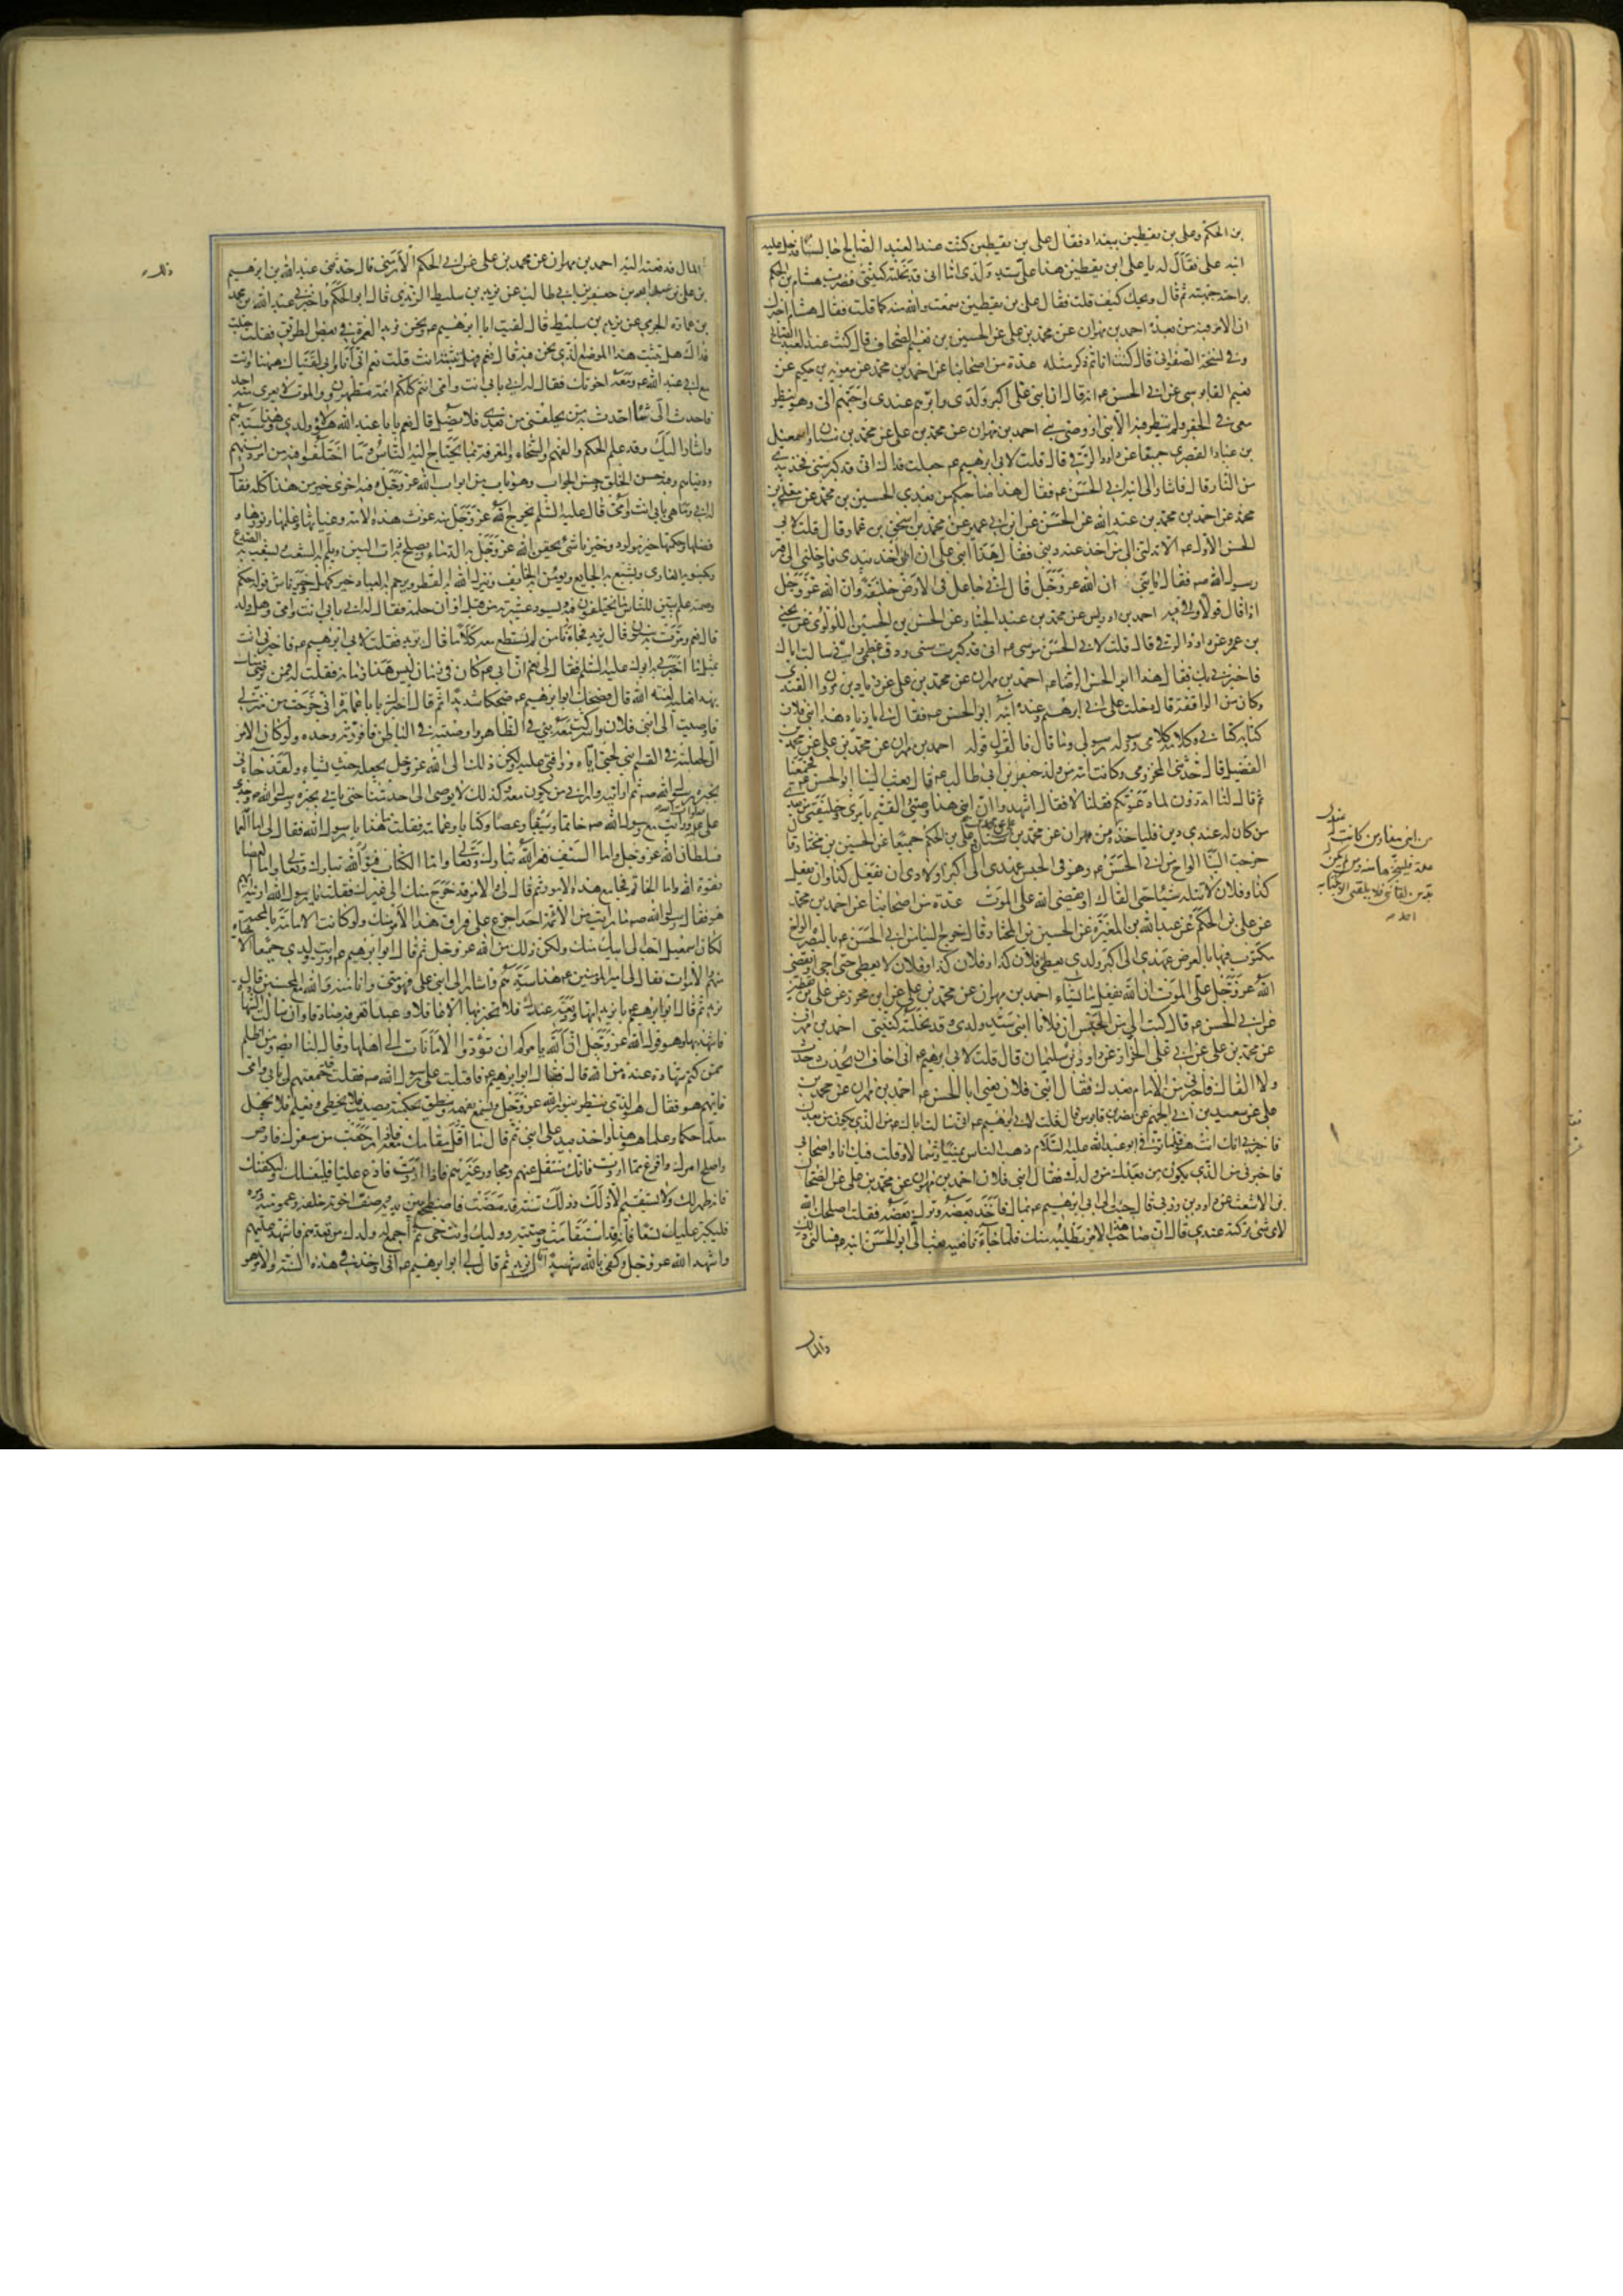 بن الحكم وعلى بن يقطين ببغداد فقال على بن يقطين كنت عند العبد الصالح جالسا فدخل عليه
ابنه على فقال له يا على ابن يقطين هذا على سيد ولدى اما انى قد نحلته كنيتى فضرب هشام بن الحكم
براحته جبهته ثم قال ويحك كيف قلت فقال على بن يقطين سمعت والله منه كما قلت فقال هشام اخبرك
ان الامر فيه من بعده احمد بن مهران عن محمد بن على عن الحسين بن نعيم الصحاف قال كنت عند العبد الصالح
وفى نسخة الصفوانى قال كنت انا ثم ذكر مثله عدة من اصحابنا عن احمد بن محمد عن معوية بن حكيم عن
نعيم القابوسى عن ابى الحسن ع انه قال ان ابنى على اكبر ولدى وابرهم عندى واحبهم الى وهو ينظر
معى فى الجفر ولم ينظر فيه الا نبى او وصى نبى احمد بن مهران عن محمد بن على عن محمد بن سنان واسمعيل
بن عباد القصرى جميعا عن داود الرقى قال قلت لابى ابرهيم ع جعلت فداك انى قد كبر سنى فخذ بيدى
من النار قال فاشار الى ابنه ابى الحسن ع فقال هذا صاحبكم من بعدى الحسين بن محمد عن معلى بن
محمد عن احمد بن محمد بن عبد الله عن الحسن عن ابن ابى عمير عن محمد بن اسحق بن عمار قال قلت لابى
الحسن الاول ع الا تدلنى الى من اخذ عنه دينى فقال هذا ابنى على ان ابى اخذ بيدى فادخلنى الى قبر
رسول الله ص فقال يا بنى ان الله عز وجل قال انى جاعل فى الارض خليفة وان الله عز وجل
اذا قال قولا وفى به احمد بن ادريس عن محمد بن عبد الجبار عن الحسن بن الحسين اللؤلؤى عن يحيى
بن عمرو عن داود الرقى قال قلت لابى الحسن موسى ع انى قد كبرت سنى ودق عظمى وانى سالت اباك
فاخبرنى بك فقال هذا ابو الحسن الرضا ع احمد بن مهران عن محمد بن على عن زياد بن مروان القندى
وكان من الواقفة قال دخلت على ابى ابرهيم وعنده ابنه ابو الحسن ع فقال لى يا زياد هذا ابنى فلان
كتابه كتابى وكلامه كلامى ورسوله رسولى وما قال فالقول قوله احمد بن مهران عن محمد بن على عن محمد بن
الفضيل قال حدثنى المخزومى وكانت امه من ولد جعفر بن ابى طالب ع قال بعث الينا ابو الحسن ع فجمعنا
ثم قال لنا اتدرون لما دعوتكم فقلنا لا فقال اشهدوا ان ابنى هذا وصيى والقيم بامرى وخليفتى من بعدى
من كان له عندى دين فلياخذه من مهران عن محمد بن سنان وعلى بن الحكم جميعا عن الحسين بن مختار قال
خرجت الينا الواح من ابى الحسن ع وهو فى الحبس عهدى الى اكبر اولادى ان يفعل كذا وان يفعل
كذا وفلان لا تنله شيئا حتى القاك او يقضى الله على الموت عدة من اصحابنا عن احمد بن محمد
عن على بن الحكم عن عبد الله بن المغيرة عن الحسين بن المختار قال خرج الينا من ابى الحسن ع بالبصرة الواح
مكتوب فيها بالعرض عهدى الى اكبر ولدى يعطى فلان كذا وفلان كذا وفلان لا يعطى حتى اجى او يقضى
الله عز وجل على الموت ان الله يفعل ما يشاء احمد بن مهران عن محمد بن على عن ابن محرز عن على بن يقطين
عن ابى الحسن ع قال كتب الى من الحبس ان فلانا ابنى سيد ولدى وقد نحلته كنيتى احمد بن مهران
عن محمد بن على عن ابى على الخزاز عن داود بن سليمان قال قلت لابى ابرهيم ع انى اخاف ان يحدث حدث
ولا القاك فاخبرنى من الامام بعدك فقال ابنى فلان يعنى ابا الحسن ع احمد بن مهران عن محمد بن
على عن سعيد بن ابى الجهم عن نصر بن قابوس قال قلت لابى ابرهيم ع انى سالت اباك ع من الذى يكون من بعدك
فاخبرنى انك انت هو فلما توفى ابو عبد الله عليه السلام ذهب الناس يمينا وشمالا وقلت فيك انا واصحابى
فاخبرنى من الذى يكون من بعدك من ولدك فقال ابنى فلان احمد بن مهران عن محمد بن على عن الضحاك
بن الاشعث عن داود بن زربى قال جئت الى ابى ابرهيم ع بمال فاخذ بعضه وترك بعضه فقلت اصلحك الله
لاى شىء تركته عندى قال ان صاحب هذا الامر يطلبه منك فلما جاءنا نعيه بعث الى ابو الحسن ابنه ع فسالنى ذلك
المال فدفعته اليه احمد بن مهران عن محمد بن على عن ابى الحكم الارمنى قال حدثنى عبد الله بن ابرهيم
بن على بن عبد الله بن جعفر بن ابى طالب عن يزيد بن سليط الزيدى قال ابو الحكم واخبرنى عبد الله بن محمد
بن عمارة الجرمى عن يزيد بن سليط قال لقيت ابا ابرهيم ع ونحن نريد العمرة فى بعض الطريق فقلت جعلت
فداك هل تثبت هذا الموضع الذى نحن فيه قال نعم فهل تثبته انت قلت نعم انى انا وابى لقيناك ههنا وانت
مع ابى عبد الله ع ومعه اخوتك فقال له ابى بابى انت وامى انتم كلكم ائمة مطهرون والموت لا يعرى منه احد
فاحدث الى شيئا احدث به من يخلفنى من بعدى فلا يضل قال نعم يا با عبد الله هؤلاء ولدى وهذا سيدهم
واشار اليك وقد علم الحكم والفهم والسخاء والمعرفة بما يحتاج اليه الناس وما اختلفوا فيه من امر دينهم
ودنياهم وفيه حسن الخلق وحسن الجواب وهو باب من ابواب الله عز وجل وفيه اخرى خير من هذا كله فقال
له ابى وما هى بابى انت وامى قال عليه السلم يخرج الله عز وجل منه غوث هذه الامة وغياثها وعلمها ونورها و
فضلها وحكمتها خير مولود وخير ناشئ يحقن الله عز وجل به الدماء ويصلح به ذات البين ويلم به الشعث ويشعب به الصدع
ويكسو به العارى ويشبع به الجايع ويؤمن به الخايف وينزل الله به القطر ويرحم به العباد خير كهل وخير ناش قوله حكم
وصمته علم يبين للناس ما يختلفون فيه ويسود عشيرته من قبل اوان حلمه فقال له ابى بابى انت وامى وهل ولد
قال نعم ومرت به سنون قال يزيد فجاءنا من لم نستطع معه كلاما قال يزيد فقلت لابى ابرهيم ع فاخبرنى انت
بمثل ما اخبرنى به ابوك عليه السلم فقال لى نعم ان ابى ع كان فى زمان ليس هذا زمانه فقلت له فمن يرضى منك
بهذا فعليه لعنة الله قال فضحك ابو ابرهيم ع ضحكا شديدا ثم قال اخبرك يا با عمارة انى خرجت من منزلى
فاوصيت الى ابنى فلان واشركت معه بنى فى الظاهر واوصيته فى الباطن فافردته وحده ولو كان الامر
الى لجعلته فى القاسم ابنى لحبى اياه ورافتى عليه ولكن ذلك الى الله عز وجل يجعله حيث يشاء ولقد جاءنى
بخبره رسول الله ص ثم ارانيه وارانى من يكون معه وكذلك لا يوصى الى احد منا حتى ياتى بخبره رسول الله ص وجدى
على ورايت مع رسول الله ص خاتما وسيفا وعصا وكتابا وعمامة فقلت ما هذا يا رسول الله فقال لى اما العمامة
فسلطان الله عز وجل واما السيف فعز الله تبارك وتعالى واما الكتاب فنور الله تبارك وتعالى واما العصا
فقوة الله واما الخاتم فجامع هذه الامور ثم قال لى والامر قد خرج منك الى غيرك فقلت يا رسول الله ارنيه ايهم
هو فقال رسول الله ص ما رايت من الائمة احدا اجزع على فراق هذا الامر منك ولو كانت الامامة بالمحبة
لكان اسمعيل احب الى ابيك منك ولكن ذلك من الله عز وجل ثم قال ابو ابرهيم ع ورايت ولدى جميعا الاحياء
منهم والاموات فقال لى امير المؤمنين ع هذا سيدهم واشار الى ابنى على فهو منى وانا منه والله مع المحسنين قال
يزيد ثم قال ابو ابرهيم ع يا يزيد انها وديعة عندك فلا تخبر بها الا عاقلا او عبدا تعرفه صادقا وان سئلت الشهادة
فاشهد بها وهو قول الله عز وجل ان الله يامركم ان تؤدوا الامانات الى اهلها وقال لنا ايضا ومن اظلم
ممن كتم شهادة عنده من الله قال فقال ابو ابرهيم ع فاقبلت على رسول الله ص فقلت قد جمعتهم لى بابى وامى
فايهم هو فقال هو الذى ينظر بنور الله عز وجل ويسمع بفهمه وينطق بحكمته يصيب فلا يخطى ويعلم فلا يجهل
معلما حكما وعلما هو هذا واخذ بيد على ابنى ثم قال ما اقل مقامك معه فاذا رجعت من سفرك فاوص
واصلح امرك وافرغ مما اردت فانك منتقل عنهم ومجاور غيرهم فاذا اردت فادع عليا فليغسلك وليكفنك
فانه طهر لك ولا يستقيم الا ذلك وذلك سنة قد مضت فاضطجع بين يديه وصف اخوته خلفه وعمومته ومره
فليكبر عليك تسعا فانه قد استقامت وصيته ووليك وانت حى ثم اجمع له ولدك من بعدهم فاشهد عليهم
واشهد الله عز وجل وكفى بالله شهيدا قال يزيد ثم قال لى ابو ابرهيم ع انى اوخذ فى هذه السنة والامر هو
والمال